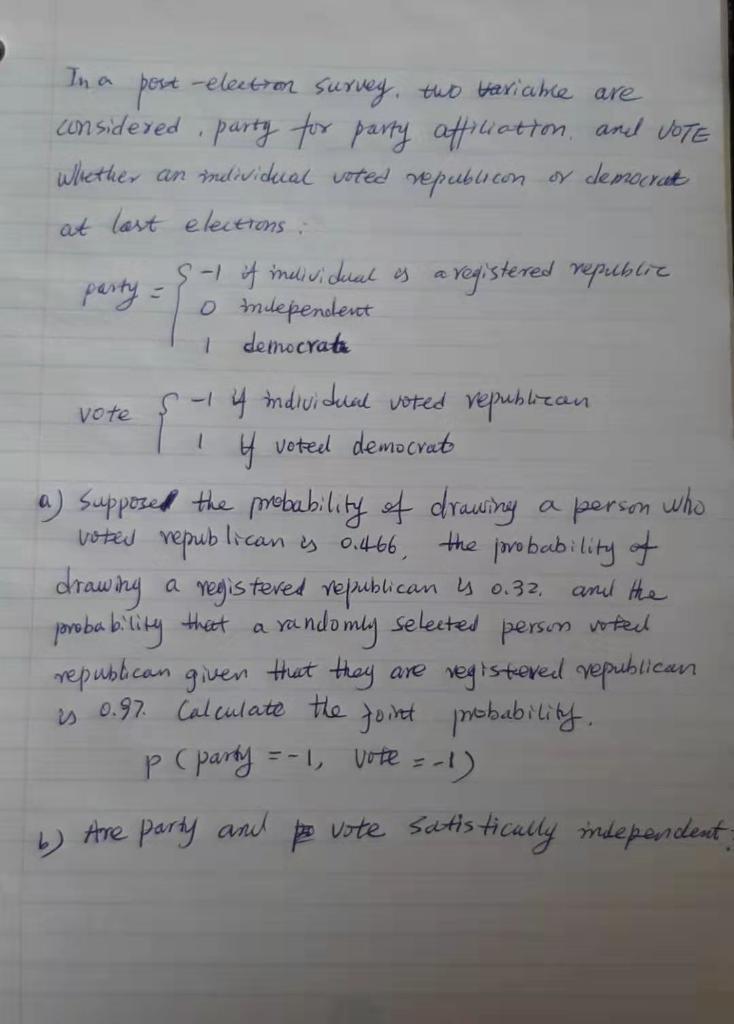 In a post-election survey, two variable are
considered, party for party affiliation, and VOTE
Whether an individual voted republicon or democrat
at last elections:
party = { -1 if individual is a registered republic
0 independent
1 democrate
vote { -1 if individual voted republican
1 if voted democrat
a) Suppose the probability of drawing a person who
voted republican is 0.466, the probability of
drawing a registered republican is 0.32, and the
probability that a randomly selected person voted
republican given that they are registered republican
is 0.97. Calculate the joint probability.
P (party = -1, vote = -1)
b) Are party and vote satistically independent?